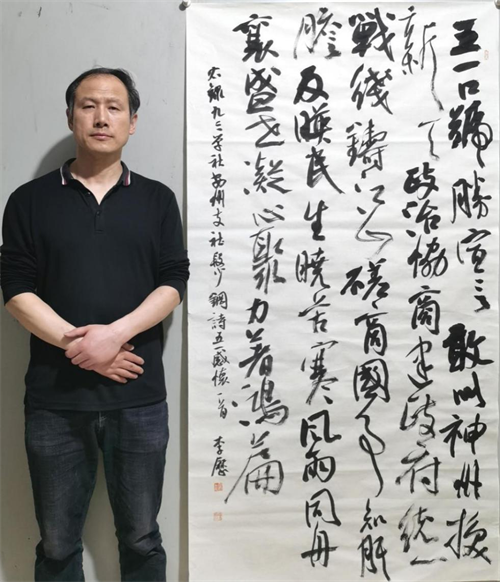 五一口號勝宣言敢叫神州換
新天政治協商建政府統一
戰綫鑄江山磋商國事知肝
膽反映民生曉苦寒風雨同舟
襄盛世凝心聚力著鴻篇
右錄九三学社州支社鋼詩五一感懷一首 李歷